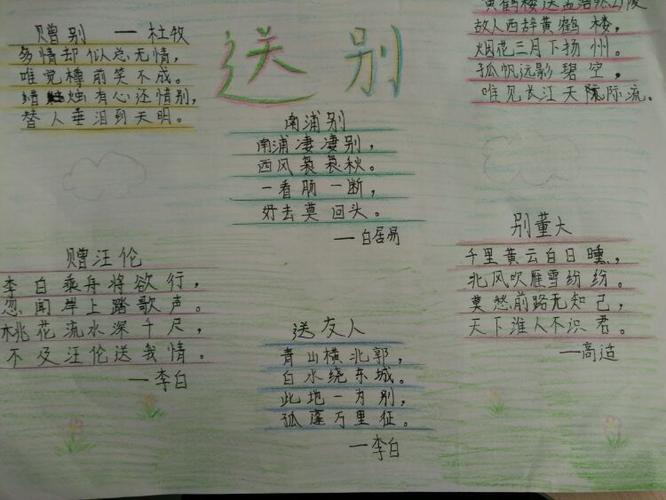 送别
赠别 — 杜牧
多情却似总无情，
唯觉樽前笑不成。
蜡烛有心还惜别，
替人垂泪到天明。
南浦别
南浦凄凄别，
西风袅袅秋。
一看肠一断，
好去莫回头。
—白居易
黄鹤楼送孟浩然之广陵
故人西辞黄鹤楼，
烟花三月下扬州。
孤帆远影碧空，
唯见长江天际流。
赠汪伦
李白乘舟将欲行，
忽闻岸上踏歌声。
桃花流水深千尺，
不及汪伦送我情。
—李白
送友人
青山横北郭，
白水绕东城。
此地一为别，
孤蓬万里征。
—李白
别董大
千里黄云白日曛，
北风吹雁雪纷纷。
莫愁前路无知己，
天下谁人不识君。
—高适